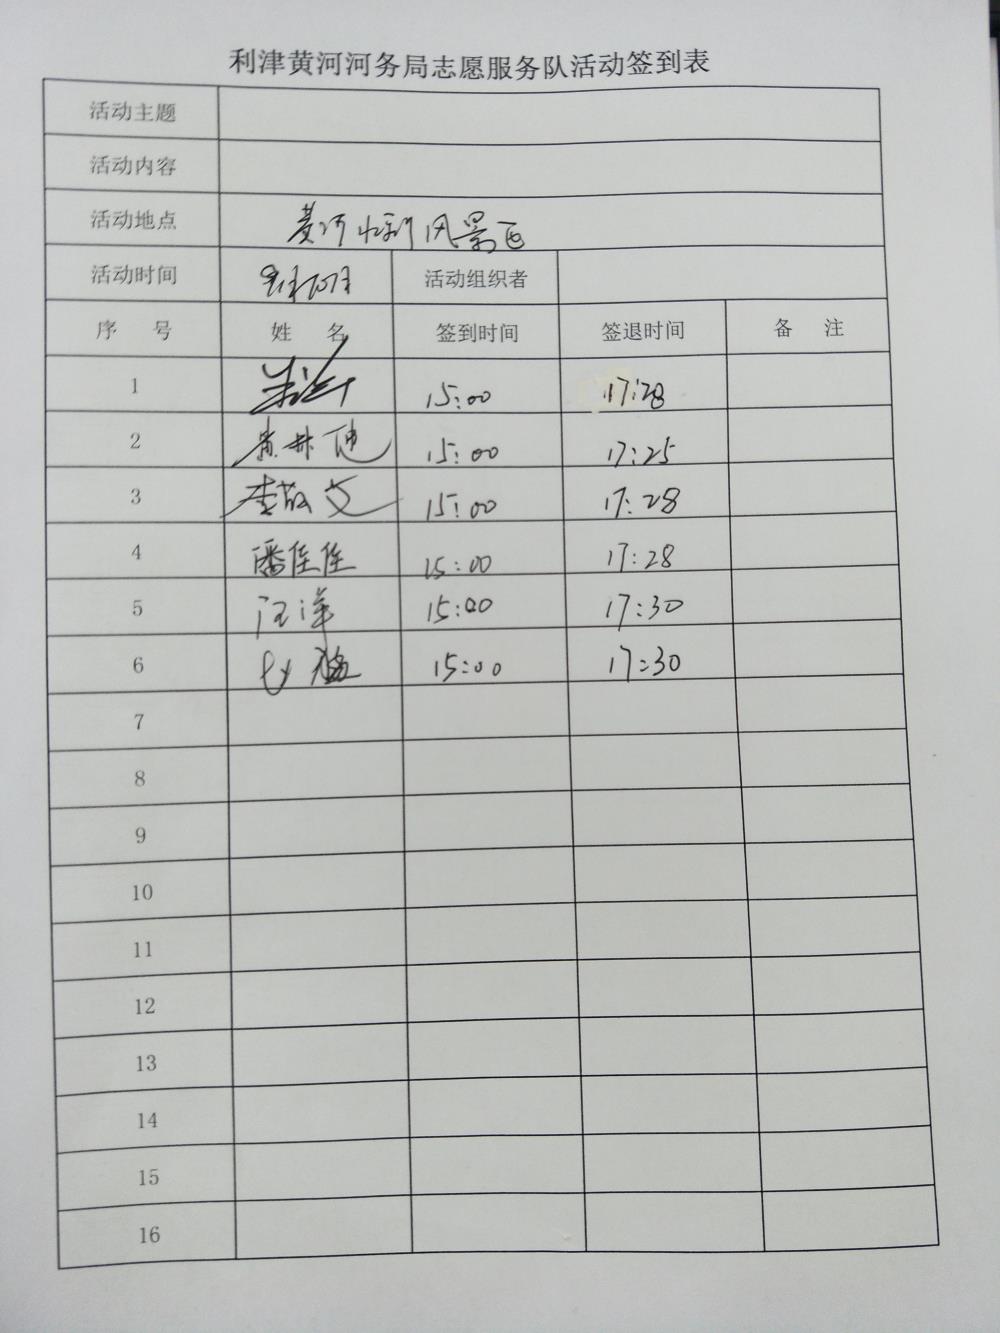 利津黄河河务局志愿服务队活动签到表
活动主题
活动内容
活动地点 黄河水利风景区
活动时间 活动组织者
序号 姓名 签到时间 签退时间 备注
1 15:00 17:28
2 15:00 17:25
3 李敬文 15:00 17:28
4 潘佳佳 15:00 17:28
5 汪洋 15:00 17:30
6 15:00 17:30
7
8
9
10
11
12
13
14
15
16